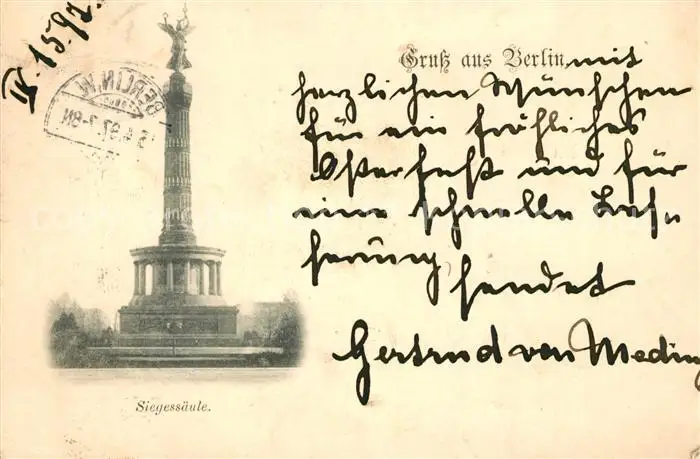 IV. 15. 92.
BERLIN, N.W.
Gruß aus Berlin, mit
herzlichen Wünschen
für ein fröhliches
Osterfest und für
eine schnelle Bes=
serung
sendet
Gertrud von Meding
Siegessäule.